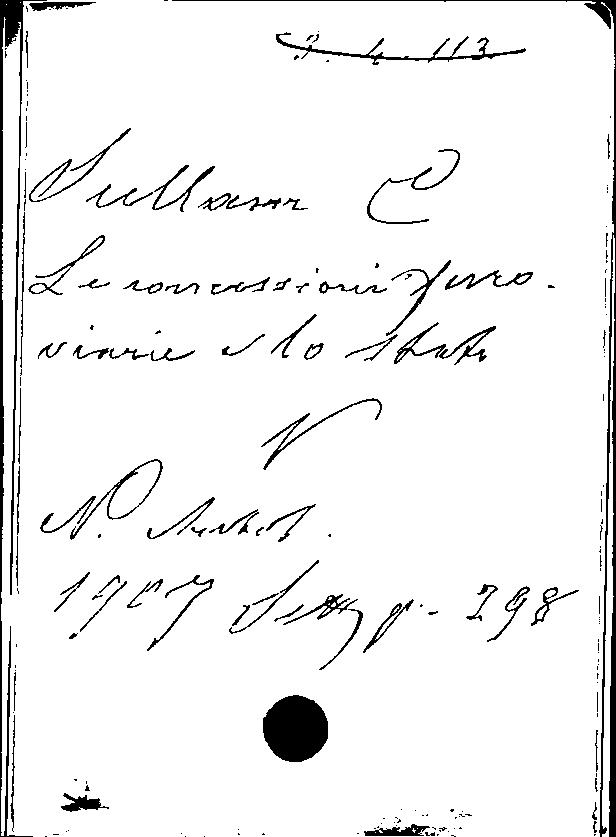 3. 4. 113
Sullam C
Le concessioni ferro-
viarie e lo stato
V
N. Antol.
1907 Sett p. 298